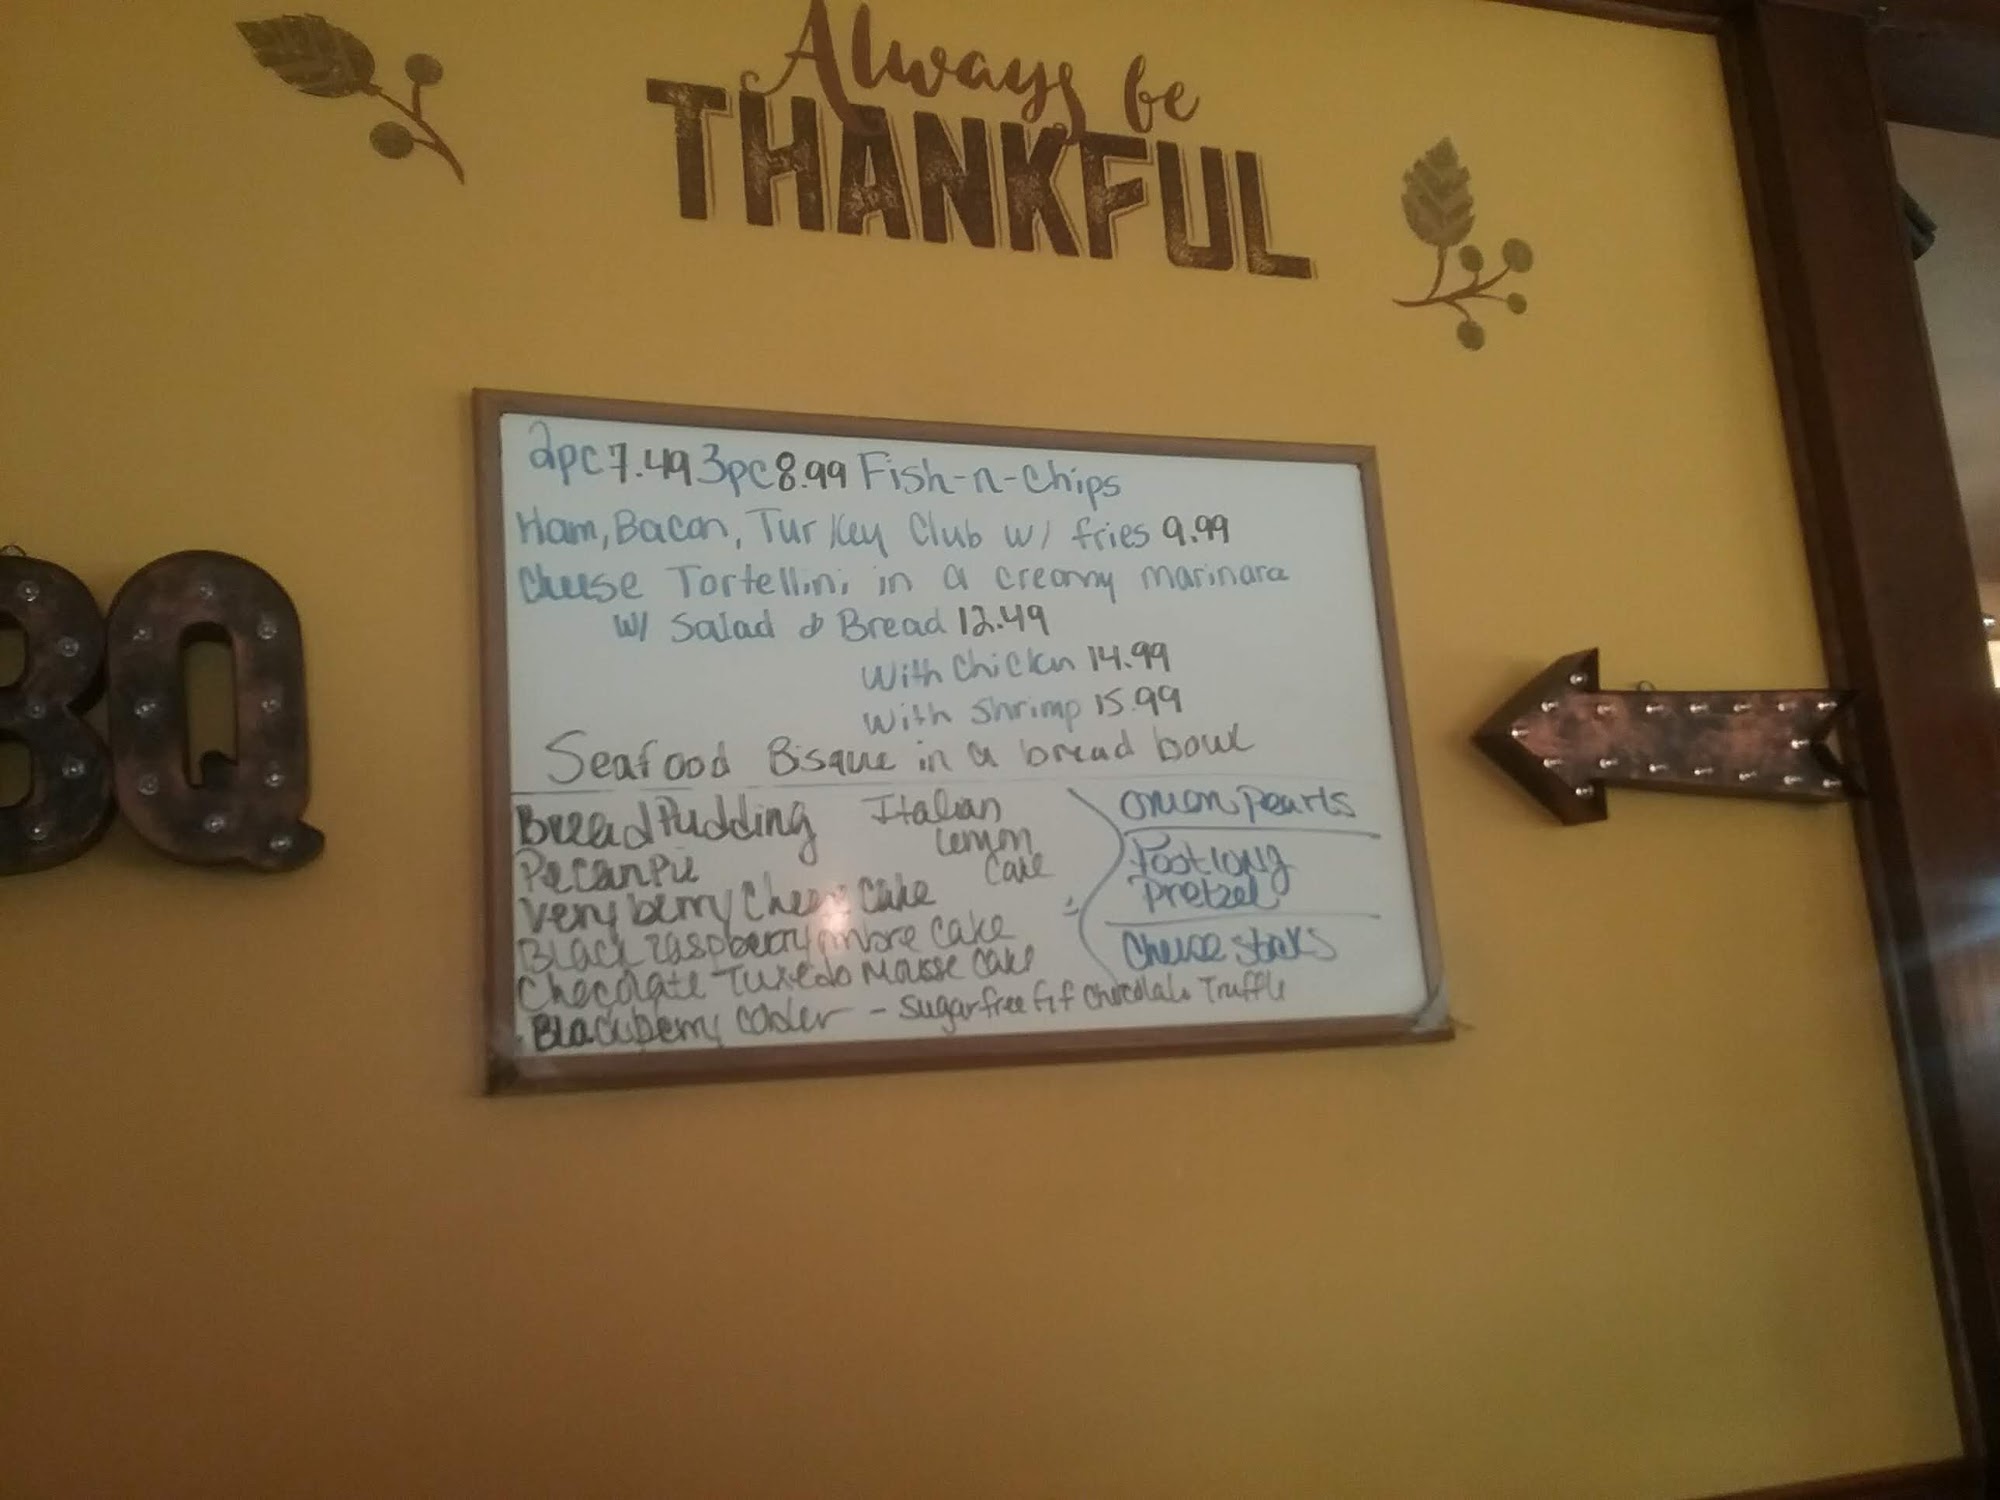 Always be
THANKFUL
BQ
2pc 7.49 3pc 8.99 Fish-n-Chips
Ham, Bacon, Turkey Club w/ fries 9.99
Cheese Tortellini in a creamy marinara
w/ Salad & Bread 12.49
with Chicken 14.99
with Shrimp 15.99
Seafood Bisque in a bread bowl
Bread Pudding
Italian
Lemon
Cake
Pecan Pie
Very berry Cheese cake
Black raspberry ombre cake
Chocolate Tuxedo Mousse Cake
Blackberry Cobler - Sugar free G f Chocolate Truffle
Onion Pearls
Foot long
Pretzel
Cheese sticks